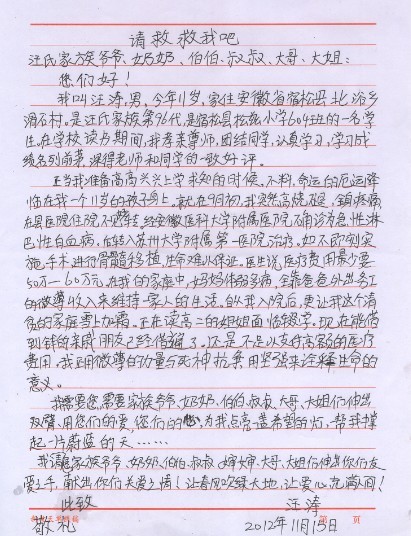 请救救我吧
汪氏家族爷爷、奶奶、伯伯、叔叔、大哥、大姐:
您们好!
我叫汪涛,男,今年11岁,家住安徽省宿松县北浴乡
滑石村。是汪氏家族第96代,是宿松县松兹小学604班的一名学
生。在学校读书期间,我孝亲尊师,团结同学,认真学习,学习成
绩名列前茅,课得老师和同学的一致好评。
正当我准备高高兴兴上学求知的时候,不料,命运的厄运降
临在我一个11岁的孩子身上。就在9月初,我突然高烧不退,全身疼痛,
在县医院住院不好转。经安徽医科大学附属医院确诊为急性淋
巴性白血病,后转入苏州大学附属第一医院治疗,如不即刻实
施手术进行骨髓移植,生命难以保证。医生说,医疗费用最少要
50万—60万元。在我的家庭中,妈妈体弱多病,全靠爸爸外出务工
的微薄收入来维持一家人的生活。自从我入院后,更让我这个清
贫的家庭雪上加霜。正在读高二的姐姐面临辍学。现在能借
到钱的亲戚朋友已经借遍了。还是不足以支付高额的医疗
费用。我正用微薄的力量与死神抗衡,用坚强来诠释生命的
意义。
我需要您,需要家族爷爷、奶奶、伯伯、叔叔、大哥、大姐们伸出
双臂,用您们的爱,您们的,为我点亮一盏希望的灯,帮我撑
起一片蔚蓝的天……
我请家族爷爷、奶奶、伯伯、叔叔、婶婶、大哥、大姐们伸出你们友
爱之手,献出你们关爱之情!让春风吹绿大地,让爱心充满人间!
此致 汪涛
敬礼 2012年11月15日
页